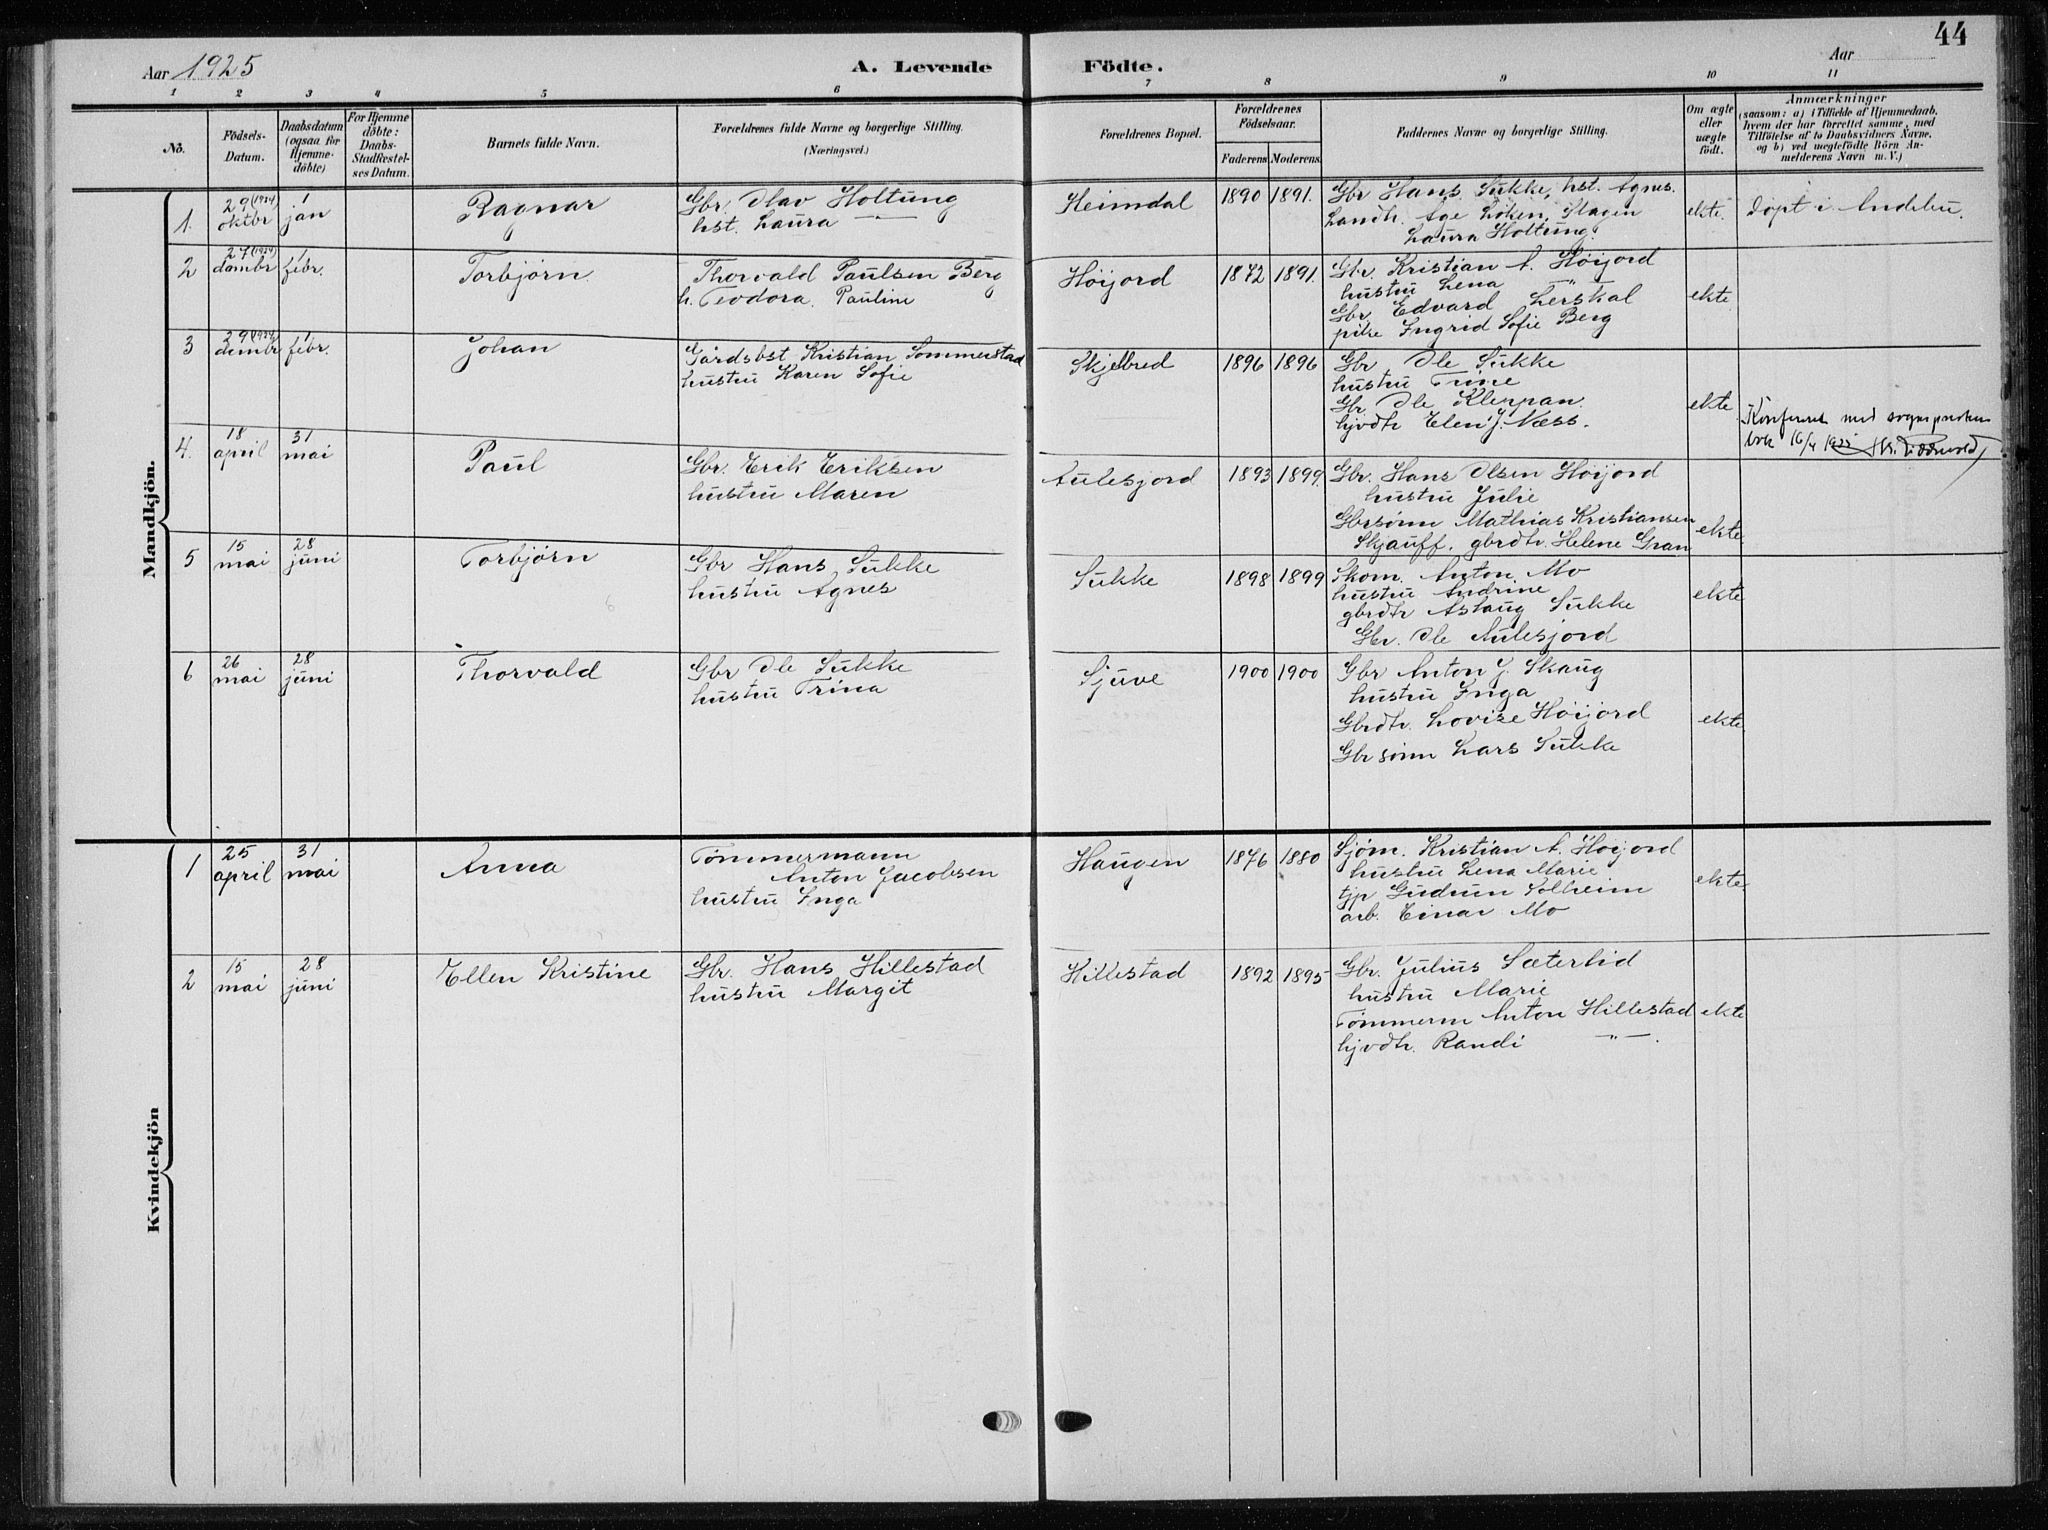 44
Aar 1925
A. Levende Födte.
Aar
1 2 3 4 5 6 7 8 9 10 11
No.
Födsels-Datum.
Daabsdatum (ogsaa for Hjemme-döbte)
For Hjemme döbte: Daabs-Stadfæstel-ses Datum.
Barnets fulde Navn.
Forældrenes fulde Navne og borgerlige Stilling. (Næringsvei.)
Forældrenes Bopæl.
Forældrenes Födselsaar.
Faderens Moderens.
Faddernes Navne og borgerlige Stilling.
Om ægte eller uægte födt.
Anmærkninger
(saasom: a) i Tilfælde af Hjemmedaab,
hvem der har forrettet samme, med
Tilföielse af to Daabsvidners Navne.
og b) ved uægtefödte Börn An-
melderens Navn m. V.)
Mandkjön.
1. 29 (1924) oktbr 1 jan Ragnar
Gbr. Olav Holtung
hst. Laura —"—
Heimdal 1890 1891.
Gbr Hans Sukke, hst. Agnes.
Landh. Åge Løken, Slagen
Laura Holtung.
ekte. døpt i Andebu.
2 27 (1924) dsmbr 1 febr. Torbjørn
Thorvald Paulsen Berg
h. Teodora Pauline
Høijord 1872 1891.
Gbr. Kristian A. Høijord
hustru Lena —"—
Gbr. Edvard Lerskal
pike Ingrid Sofie Berg
ekte
3 29 (1924) dsmbr 1 febr. Johan
Gårdsbst Kristian Sommerstad
hustru Karen Sofie
Skjelbred 1896 1896
Gbr Ole Sukke
hustru Trine
Gbr Ole Kleppan.
hjvdtr Elen J. Næss.
ekte
Konferert med sogneprestens
bok 16/4 1925
4. 18 april 31 mai Paul
Gbr. Erik Eriksen
hustru Maren
Aulesjord 1893 1899.
Gbr. Hans Olsen Høijord
hustru Julie
Gbrsønn Mathias Kristiansen
Skjauff. gbrdtr. Helene Gran
ekte
5 15 mai 28 juni Torbjørn
Gbr Hans Sukke
hustru Agnes
6
Sukke 1898 1899
Skom. Anton Mo
hustru Andrine
gbrdtr Aslaug Sukke
Gbr. Ole Aulesjord
ekte
6 26 mai 28 juni Thorvald
Gbr Ole Sukke
hustru Trina
Sjuve 1900 1900
Gbr Anton J. Skaug
hustru Inga
Gbrdtr. Lovise Høijord
Gbrsønn Lars Sukke
ekte.
Kvindekjön
1 25 april 31 mai Anna
Tømmermann
Anton Jacobsen
hustru Inga
Haugen 1876 1880
Sjøm. Kristian A. Høijord
hustru Lena Marie
tjp Gudrun Solheim
arb. Einar Mo
ekte
2 15 mai 28 juni Ellen Kristine
Gbr. Hans Hillestad
hustru Margit
Hillestad 1892 1895
Gbr. Julius Sæterlid
hustru Marie
Tømmerm Anton Hillestad
hjvdtr. Randi —"—.
ekte